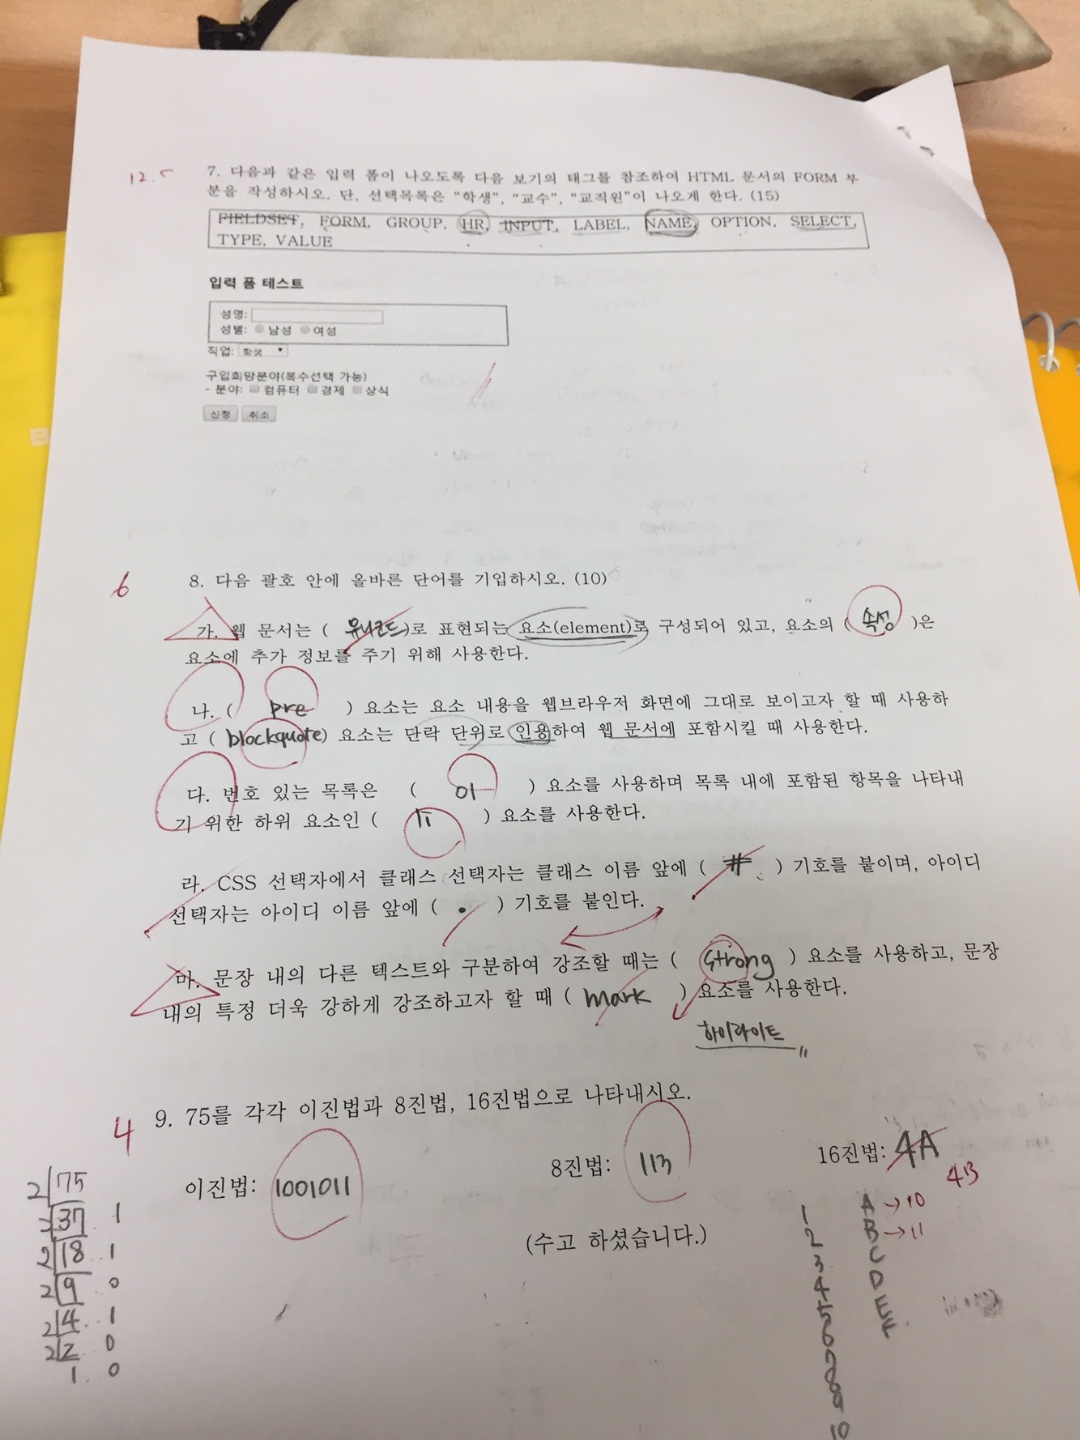 12.5
7. 다음과 같은 입력 폼이 나오도록 다음 보기의 태그를 참조하여 HTML 문서의 FORM 부
분을 작성하시오. 단, 선택목록은 "학생", "교수", "교직원"이 나오게 한다. (15)
FIELDSET, FORM, GROUP, HR, INPUT, LABEL, NAME, OPTION, SELECT,
TYPE, VALUE
입력 폼 테스트
성명:
성별: 남성 여성
직업: 학생
구입희망분야(복수선택 가능)
- 분야: 컴퓨터 경제 상식
신청 취소
6
8. 다음 괄호 안에 올바른 단어를 기입하시오. (10)
가. 웹 문서는 ( 유니코드 )로 표현되는 요소(element)로 구성되어 있고, 요소의 ( 속성 )은
요소에 추가 정보를 주기 위해 사용한다.
나. ( pre ) 요소는 요소 내용을 웹브라우저 화면에 그대로 보이고자 할 때 사용하
고 ( blockquote ) 요소는 단락 단위로 인용하여 웹 문서에 포함시킬 때 사용한다.
다. 번호 있는 목록은 ( ol ) 요소를 사용하며 목록 내에 포함된 항목을 나타내
기 위한 하위 요소인 ( li ) 요소를 사용한다.
라. CSS 선택자에서 클래스 선택자는 클래스 이름 앞에 ( # ) 기호를 붙이며, 아이디
선택자는 아이디 이름 앞에 ( . ) 기호를 붙인다.
마. 문장 내의 다른 텍스트와 구분하여 강조할 때는 ( strong ) 요소를 사용하고, 문장
내의 특정 더욱 강하게 강조하고자 할 때 ( mark ) 요소를 사용한다.
하이라이트
4
9. 75를 각각 이진법과 8진법, 16진법으로 나타내시오.
이진법: 1001011 8진법: 113 16진법: 4A
4B
(수고 하셨습니다.)
2 75
2 37 1
2 18 1
2 9 0
2 4 1
2 2 0
1 0
1
2
3
4
5
6
7
8
9
10
A → 10
B → 11
C
D
E
F